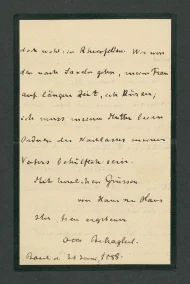 doch wohl in Rheinfelden. Wir werden
dann nach Laxdorf gehen, meine Frau
auf längere Zeit, ich kürzer;
ich muss meiner Mutter beim
Ordnen des Nachlasses meines
Vaters behülflich sein.
Mit herzlichen Grüssen
von Haus zu Haus
Ihr treu ergebener
Otto Behaghel.
Basel d. 20 Juni 1888.